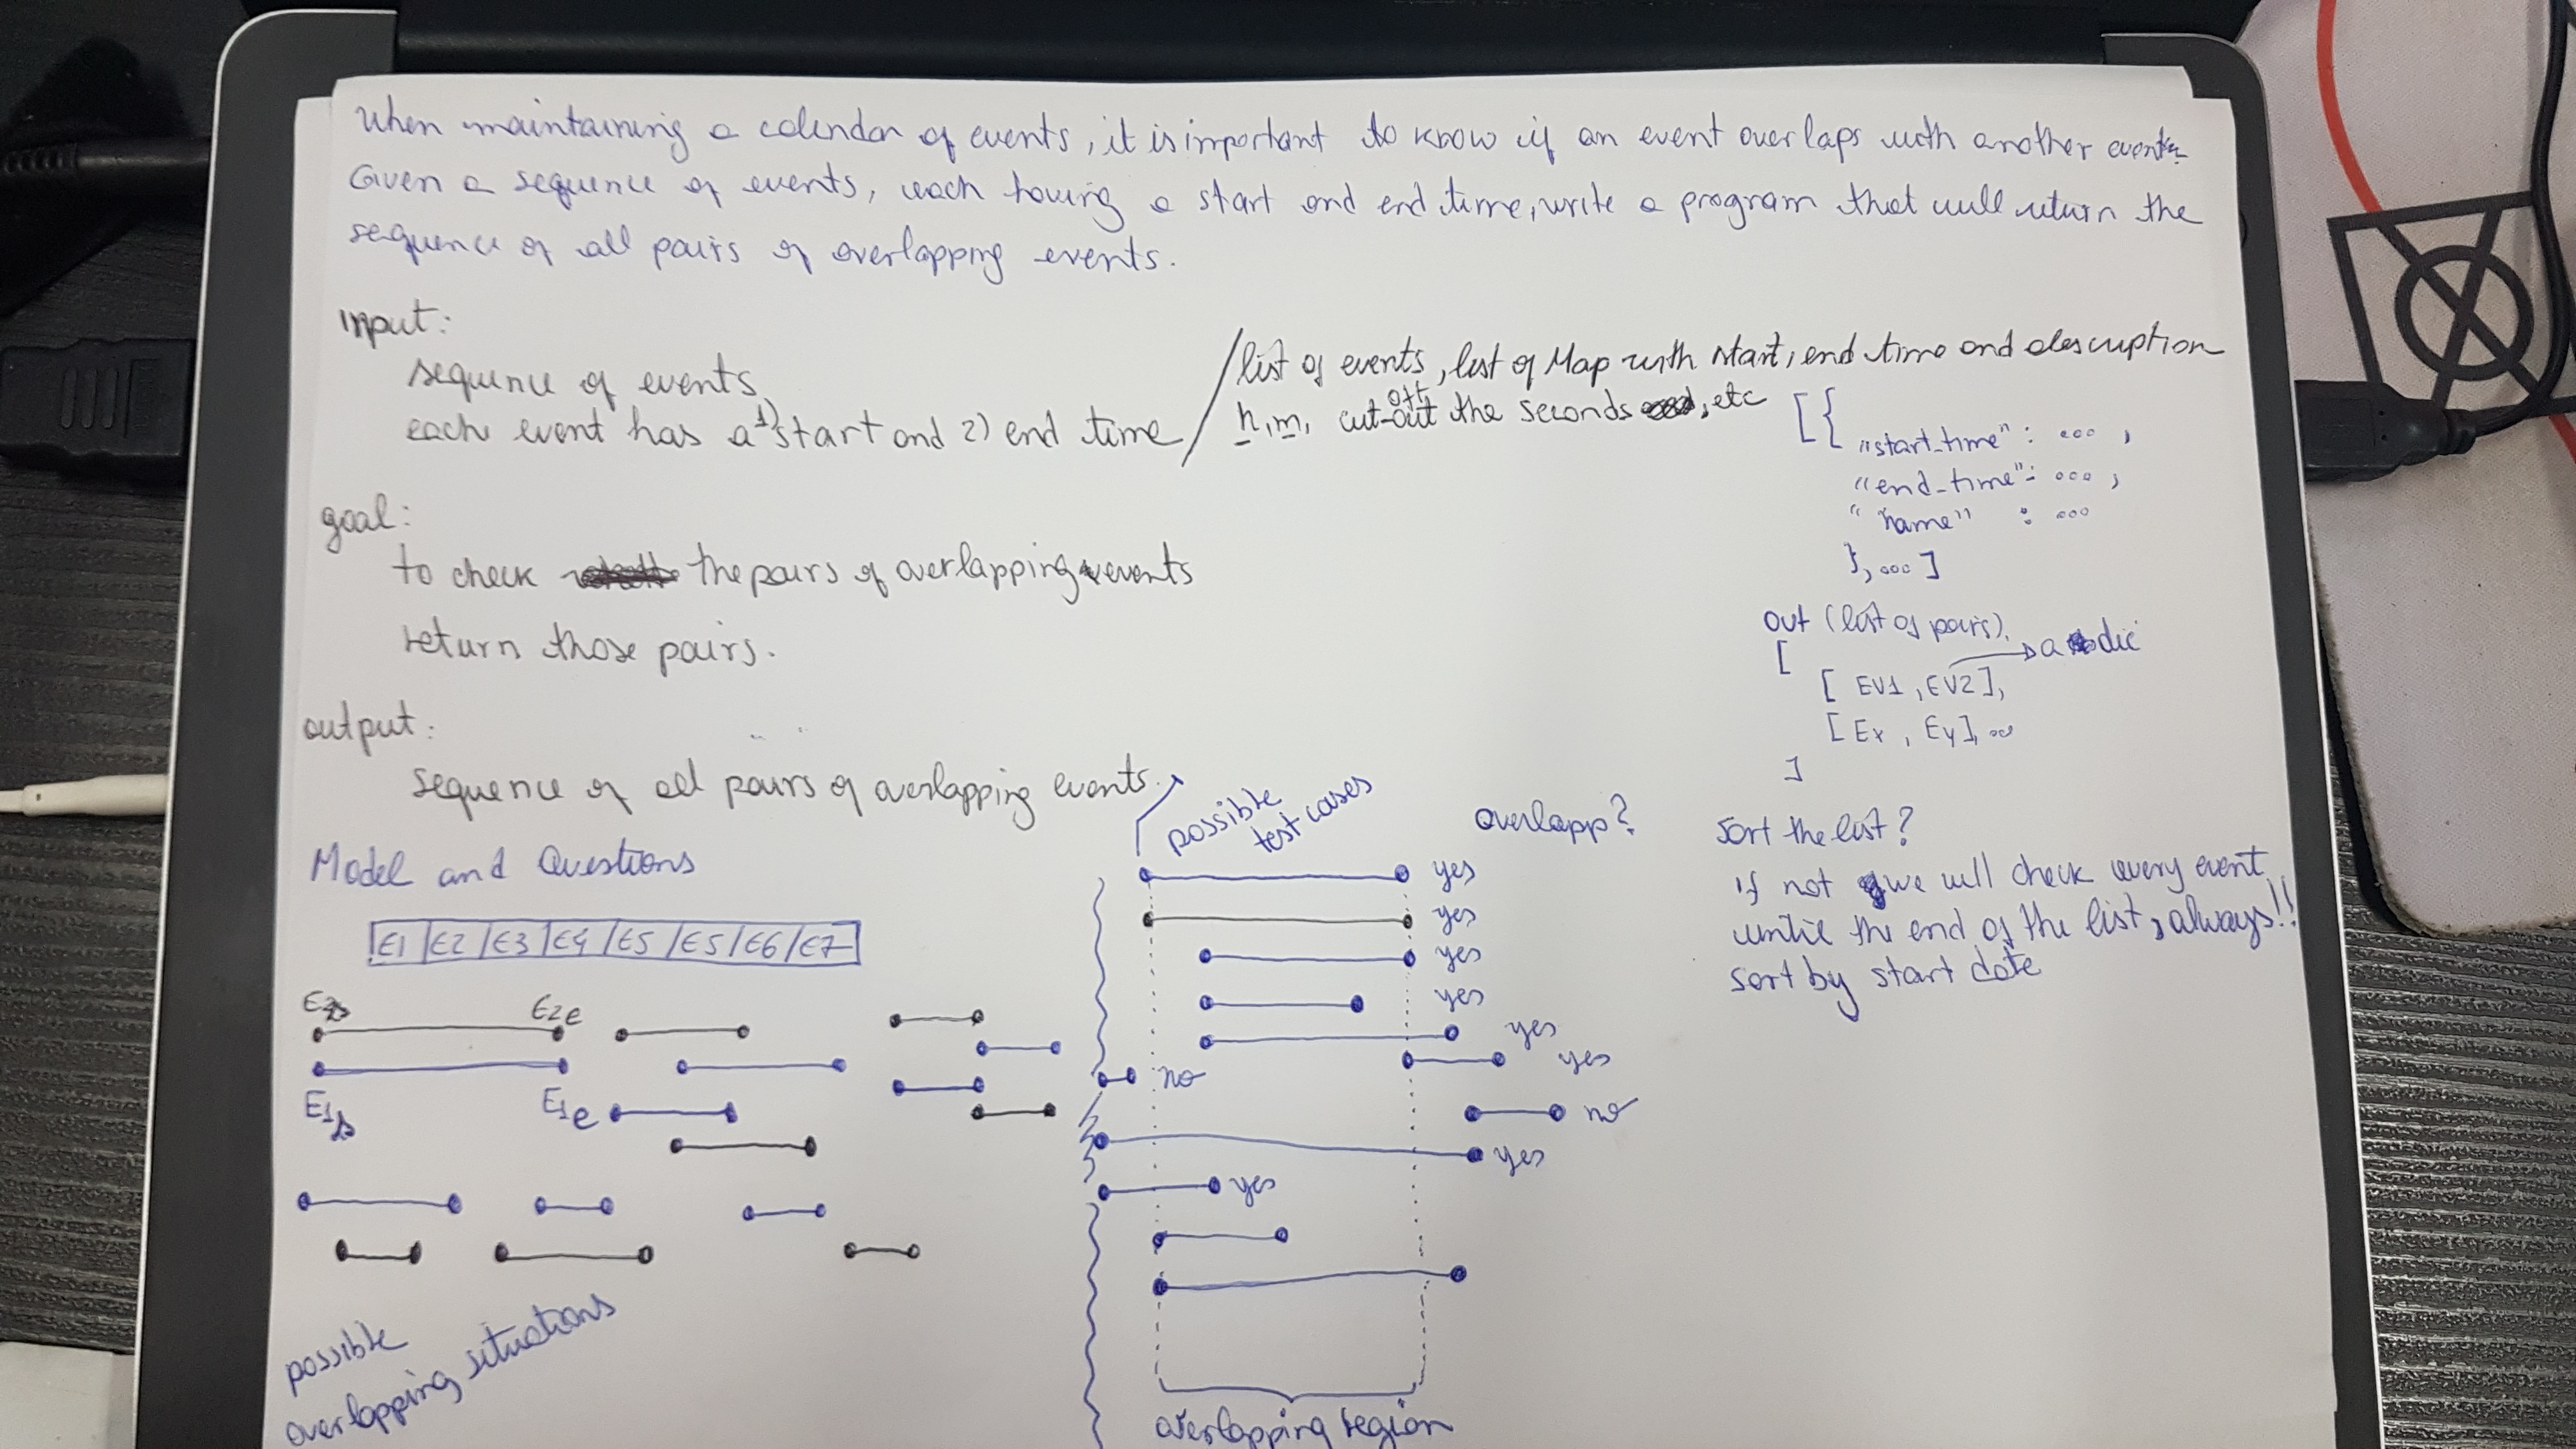 When maintaining a calendar of events, it is important to know if an event overlaps with another event.
Given a sequence of events, each having a start and end time, write a program that will return the
sequence of all pairs of overlapping events.
input:
sequence of events,
each event has a 1) start and 2) end time
list of events, list of Map with start, end time and description
h, m, cut-out off the seconds, etc
[{
"start_time": ... ,
"end_time": ... ,
"name" : ...
}, ... ]
goal:
to check the pairs of overlapping events
return those pairs.
out (list of pairs).
[
→ a dic
[ EV1, EV2 ],
[ Ex, Ey ], ...
]
output:
sequence of all pairs of overlapping events.
Model and Questions
E1 E2 E3 E4 E5 E5 E6 E7
E2s E2e
E1s E1e
possible
overlapping situations
possible
test cases
overlapp?
yes
yes
yes
yes
yes
yes
no
no
yes
yes
overlapping region
Sort the list?
if not we will check every event
untie the end of the list, always!!
sort by start date